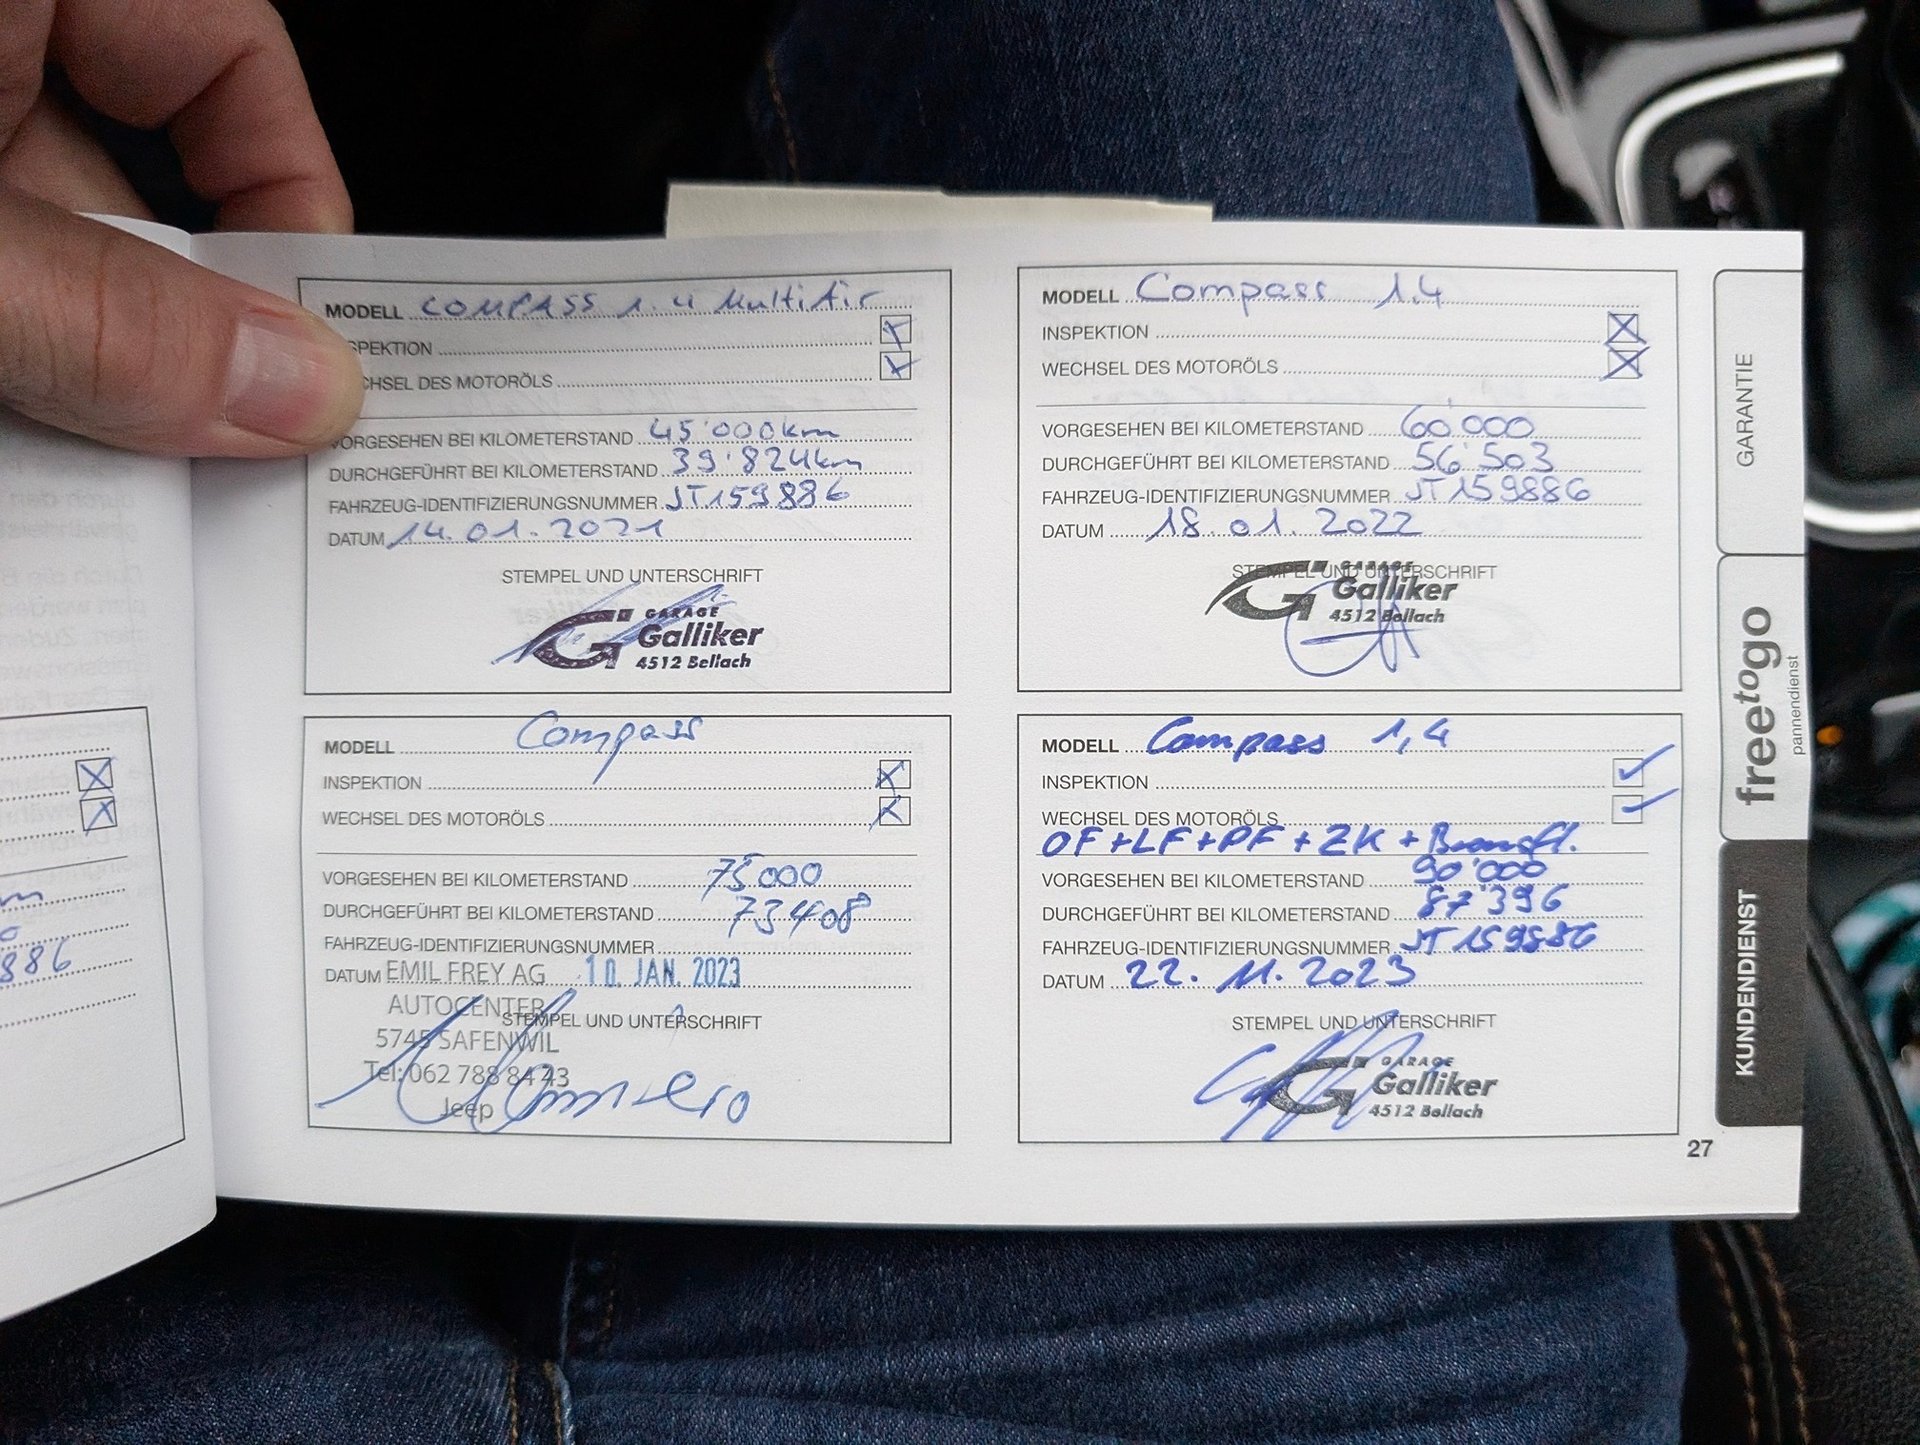 MODELL COMPASS 1.4 MultiAir
SPEKTION
CHSEL DES MOTORÖLS
VORGESEHEN BEI KILOMETERSTAND 45'000km
DURCHGEFÜHRT BEI KILOMETERSTAND 39'824km
FAHRZEUG-IDENTIFIZIERUNGSNUMMER JT159886
DATUM 14.01.2021
STEMPEL UND UNTERSCHRIFT
GARAGE
Galliker
4512 Bellach
MODELL Compass 1,4
INSPEKTION
WECHSEL DES MOTORÖLS
VORGESEHEN BEI KILOMETERSTAND 60'000
DURCHGEFÜHRT BEI KILOMETERSTAND 56'503
FAHRZEUG-IDENTIFIZIERUNGSNUMMER JT159886
DATUM 18.01.2022
STEMPEL UND UNTERSCHRIFT
GARAGE
Galliker
4512 Bellach
MODELL Compass
INSPEKTION
WECHSEL DES MOTORÖLS
VORGESEHEN BEI KILOMETERSTAND 75'000
DURCHGEFÜHRT BEI KILOMETERSTAND 73408
FAHRZEUG-IDENTIFIZIERUNGSNUMMER
DATUM EMIL FREY AG 10. JAN. 2023
AUTOCENTER
STEMPEL UND UNTERSCHRIFT
5745 SAFENWIL
Tel: 062 788 84 43
Jeep
MODELL Compass 1,4
INSPEKTION
WECHSEL DES MOTORÖLS
OF+LF+PF+ZK+Bremsfl.
VORGESEHEN BEI KILOMETERSTAND 90'000
DURCHGEFÜHRT BEI KILOMETERSTAND 87'396
FAHRZEUG-IDENTIFIZIERUNGSNUMMER JT159886
DATUM 22.11.2023
STEMPEL UND UNTERSCHRIFT
GARAGE
Galliker
4512 Bellach
27
GARANTIE
freetogo
pannendienst
KUNDENDIENST
886